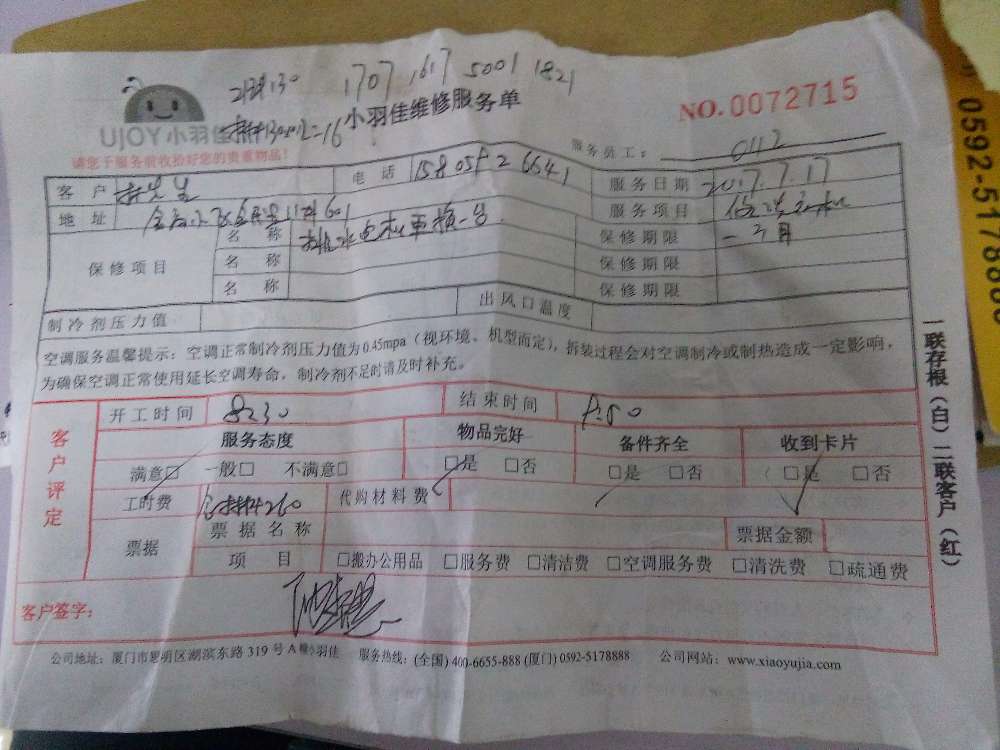 1707 1617 5001 1821
UJOY小羽佳
小羽佳维修服务单
NO.0072715
请您于服务前收拾好您的贵重物品!
服务员工: 0112
客户
电话
服务日期 2017.7.17
地址
服务项目
保修项目
名称
保修期限 一个月
名称
保修期限
名称
保修期限
制冷剂压力值
出风口温度
空调服务温馨提示:空调正常制冷剂压力值为0.45mpa(视环境、机型而定),拆装过程会对空调制冷或制热造成一定影响,
为确保空调正常使用延长空调寿命,制冷剂不足时请及时补充。
客户评定
开工时间 8:30
结束时间
服务态度
物品完好
备件齐全
收到卡片
满意□ 一般□ 不满意□
□是 □否
□是 □否
□是 □否
工时费
代购材料费
票据
票据名称
票据金额
项目
□搬办公用品 □服务费 □清洁费 □空调服务费 □清洗费 □疏通费
客户签字:
公司地址:厦门市思明区湖滨东路319号A幢小羽佳 服务热线:(全国)400-6655-888(厦门)0592-5178888 公司网站:www.xiaoyujia.com
一联存根(白)二联客户(红)
0592-5178888